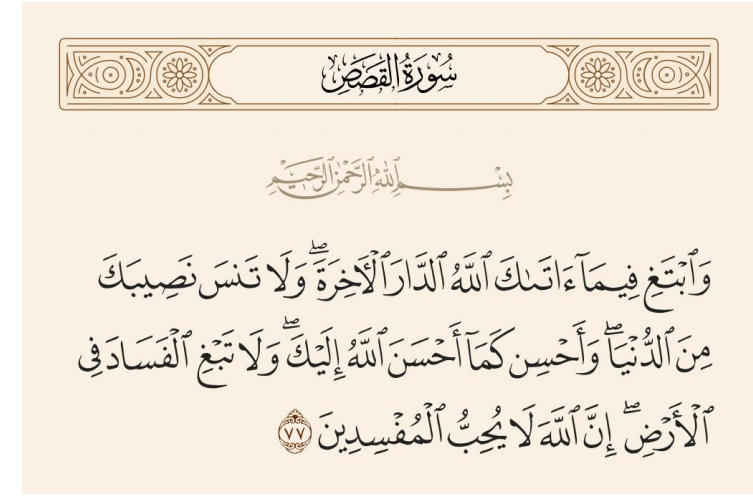 سُورَةُ القَصَصِ
بِسْمِ ٱللَّهِ ٱلرَّحْمَٰنِ ٱلرَّحِيمِ
وَٱبْتَغِ فِيمَآ ءَاتَىٰكَ ٱللَّهُ ٱلدَّارَ ٱلْأٓخِرَةَ ۖ وَلَا تَنسَ نَصِيبَكَ
مِنَ ٱلدُّنْيَا ۖ وَأَحْسِن كَمَآ أَحْسَنَ ٱللَّهُ إِلَيْكَ ۖ وَلَا تَبْغِ ٱلْفَسَادَ فِى
ٱلْأَرْضِ ۖ إِنَّ ٱللَّهَ لَا يُحِبُّ ٱلْمُفْسِدِينَ ٧٧